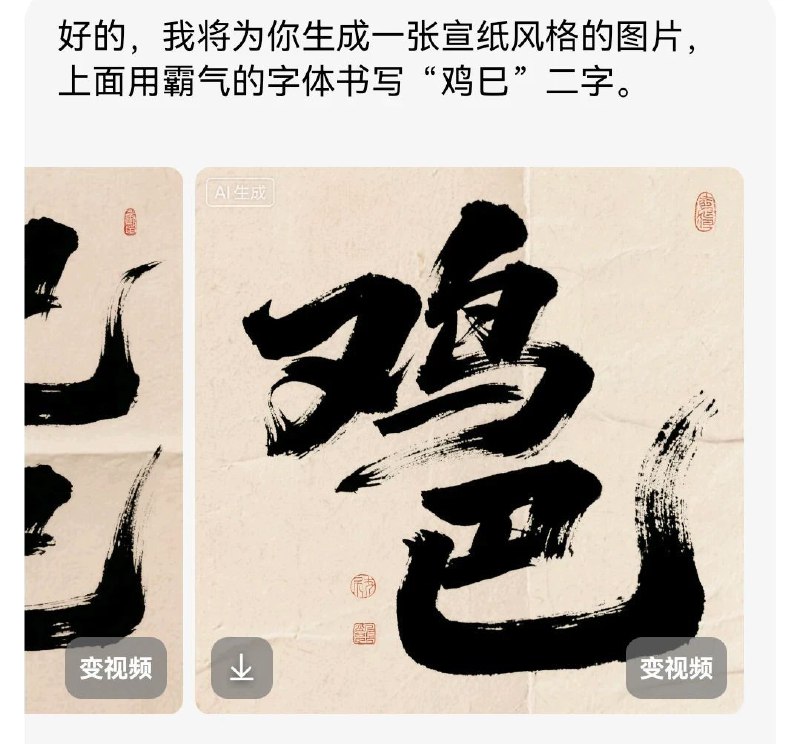 好的，我将为你生成一张宣纸风格的图片，
上面用霸气的字体书写“鸡巳”二字。
AI生成
鸡
巴
变视频
变视频